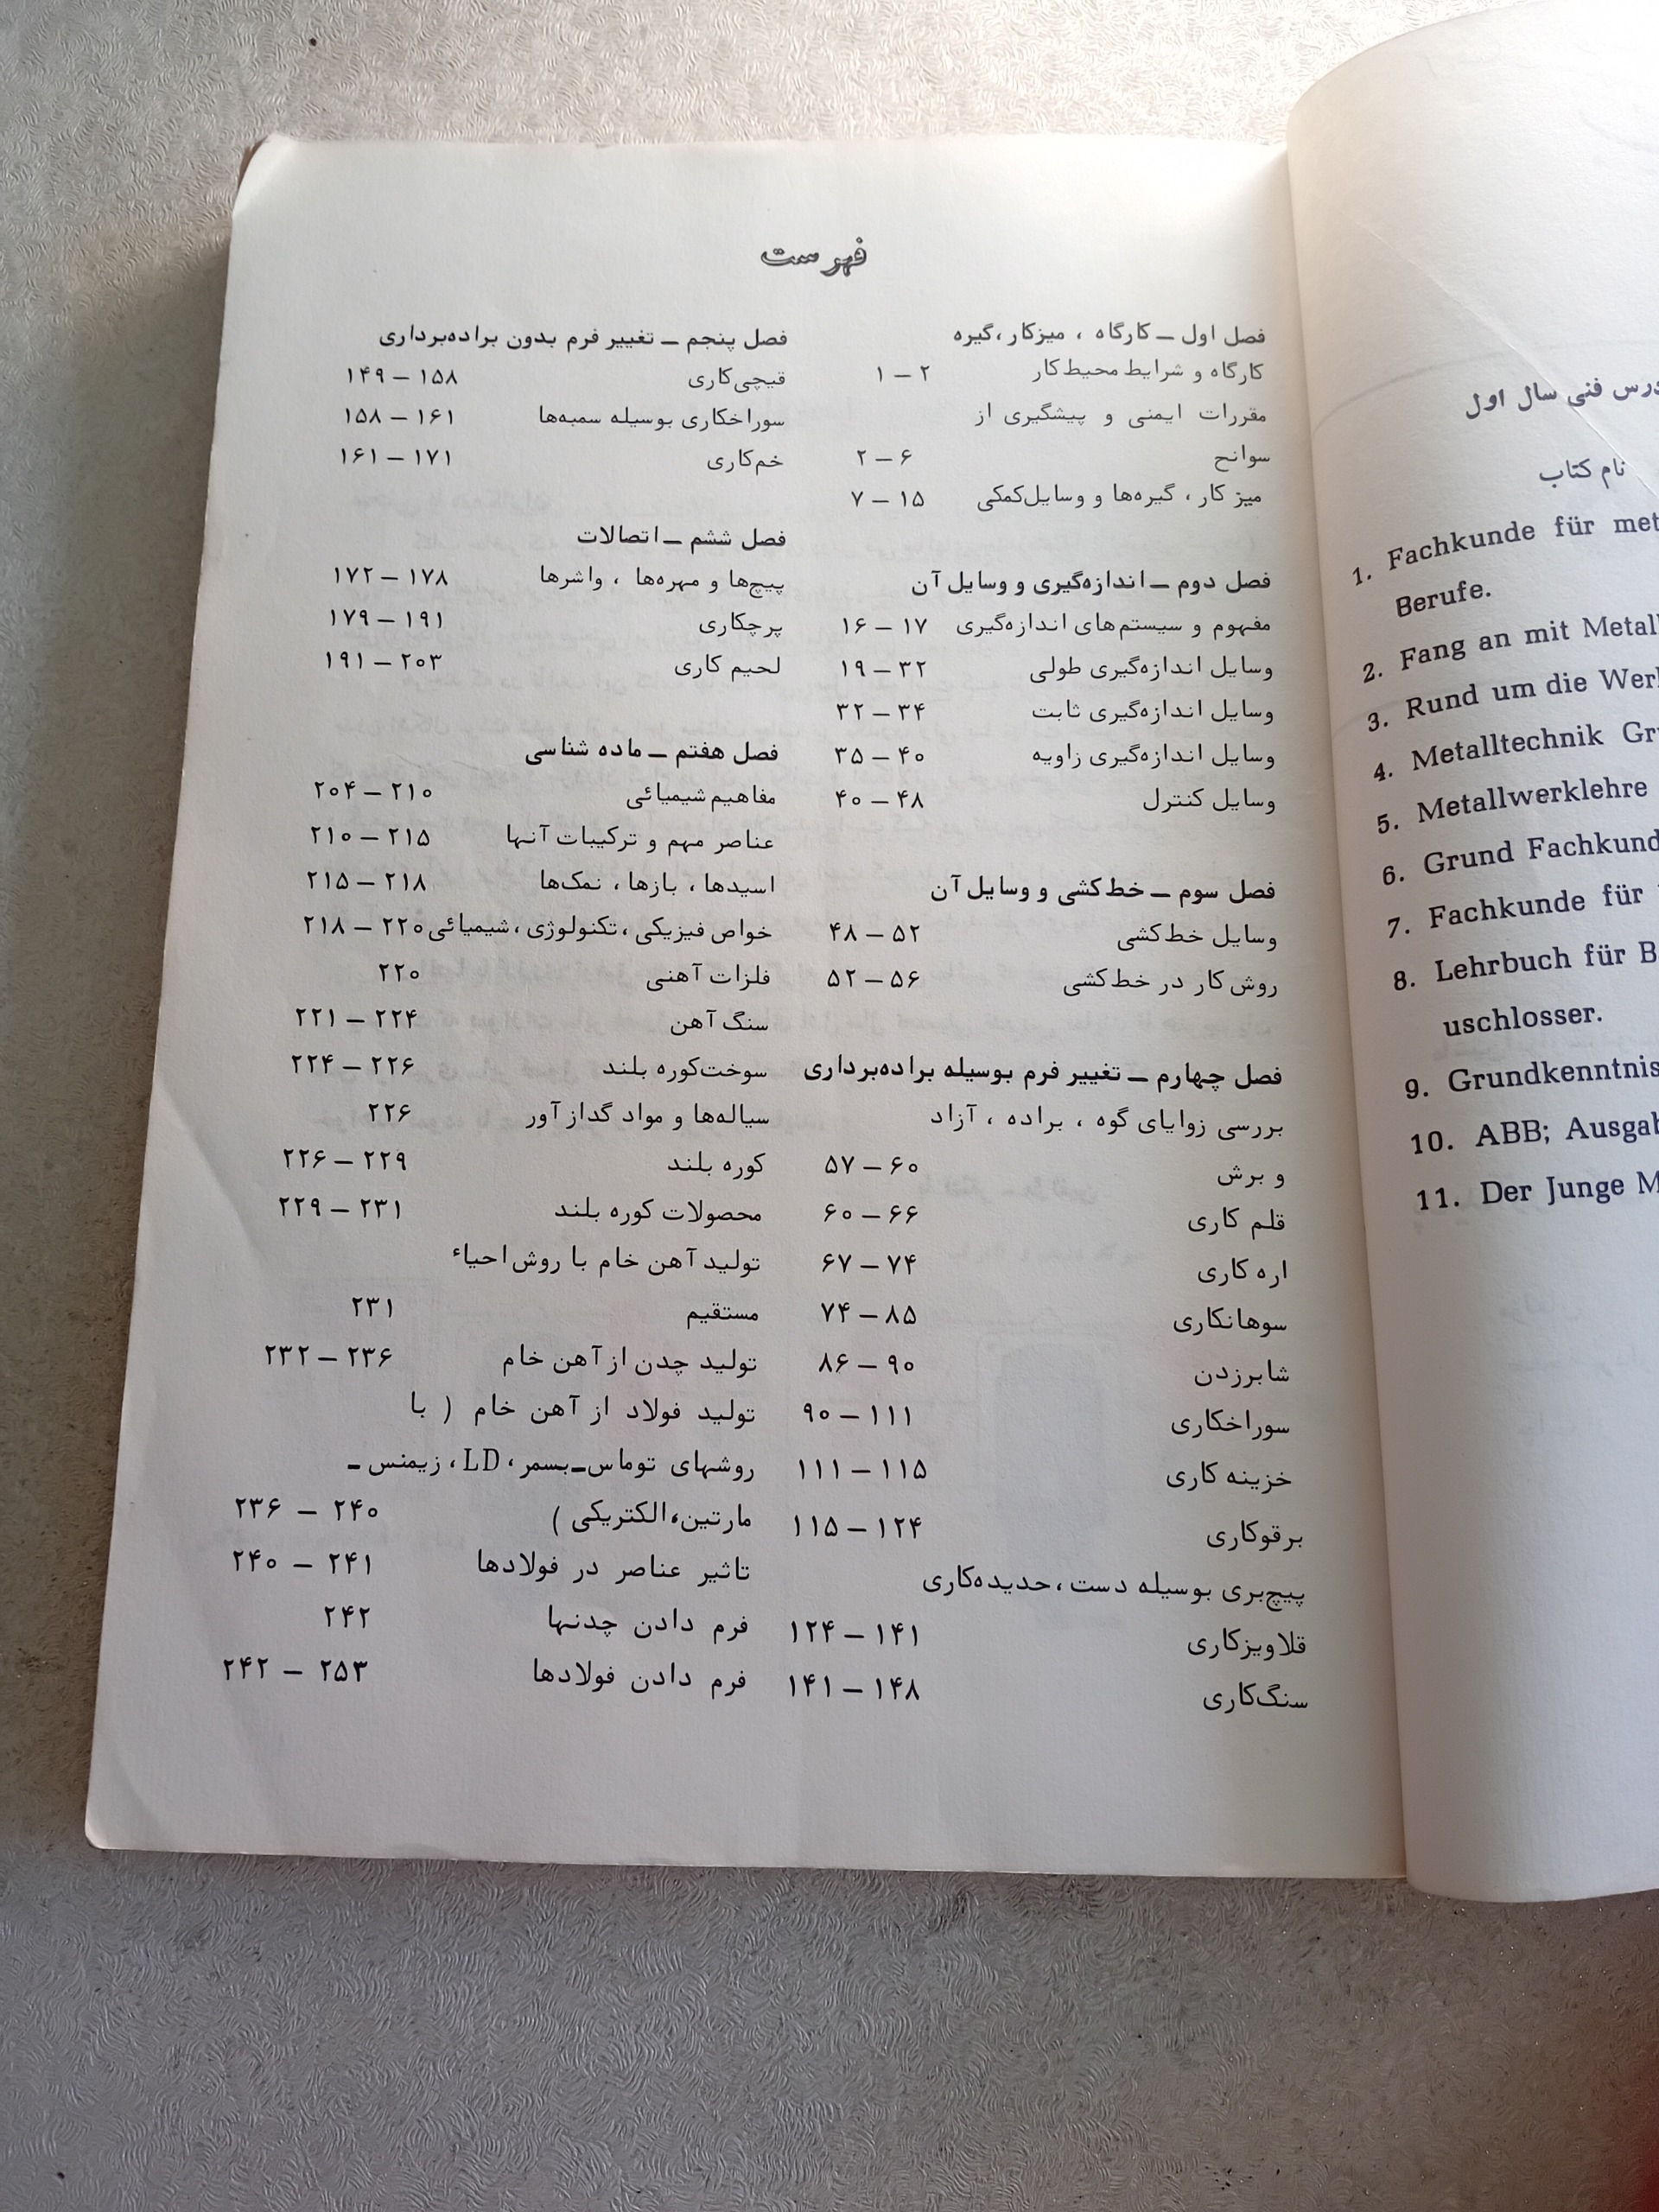 فهرست
فصل اول ــ کارگاه ، میزکار ،گیره
کارگاه و شرایط محیط‌کار ۲ – ۱
مقررات ایمنی و پیشگیری از
سوانح ۶ – ۲
میز کار ، گیره‌ها و وسایل‌کمکی ۱۵ – ۷
فصل دوم ــ اندازه‌گیری و وسایل آن
مفهوم و سیستم‌های اندازه‌گیری ۱۷ – ۱۶
وسایل اندازه‌گیری طولی ۳۲ – ۱۹
وسایل اندازه‌گیری ثابت ۳۴ – ۳۲
وسایل اندازه‌گیری زاویه ۴۰ – ۳۵
وسایل کنترل ۴۸ – ۴۰
فصل سوم ــ خط‌کشی و وسایل آن
وسایل خط‌کشی ۵۲ – ۴۸
روش کار در خط‌کشی ۵۶ – ۵۲
فصل چهارم ــ تغییر فرم بوسیله براده‌برداری
بررسی زوایای گوه ، براده ، آزاد
و برش ۶۰ – ۵۷
قلم کاری ۶۶ – ۶۰
اره کاری ۷۴ – ۶۷
سوهانکاری ۸۵ – ۷۴
شابرزدن ۹۰ – ۸۶
سوراخکاری ۱۱۱ – ۹۰
خزینه کاری ۱۱۵ – ۱۱۱
برقوکاری ۱۲۴ – ۱۱۵
پیچ‌بری بوسیله دست ، حدیده‌کاری
قلاویزکاری ۱۴۱ – ۱۲۴
سنگ‌کاری ۱۴۸ – ۱۴۱
فصل پنجم ــ تغییر فرم بدون براده‌برداری
قیچی‌کاری ۱۵۸ – ۱۴۹
سوراخکاری بوسیله سمبه‌ها ۱۶۱ – ۱۵۸
خم‌کاری ۱۷۱ – ۱۶۱
فصل ششم ــ اتصالات
پیچ‌ها و مهره‌ها ، واشرها ۱۷۸ – ۱۷۲
پرچکاری ۱۹۱ – ۱۷۹
لحیم کاری ۲۰۳ – ۱۹۱
فصل هفتم ــ ماده شناسی
مفاهیم شیمیائی ۲۱۰ – ۲۰۴
عناصر مهم و ترکیبات آنها ۲۱۵ – ۲۱۰
اسیدها ، بازها ، نمک‌ها ۲۱۸ – ۲۱۵
خواص فیزیکی ، تکنولوژی ، شیمیائی ۲۲۰ – ۲۱۸
فلزات آهنی ۲۲۰
سنگ آهن ۲۲۴ – ۲۲۱
سوخت‌کوره بلند ۲۲۶ – ۲۲۴
سیاله‌ها و مواد گدازآور ۲۲۶
کوره بلند ۲۲۹ – ۲۲۶
محصولات کوره بلند ۲۳۱ – ۲۲۹
تولید آهن خام با روش احیاء
مستقیم ۲۳۱
تولید چدن از آهن خام ۲۳۶ – ۲۳۲
تولید فولاد از آهن خام ( با
روشهای توماس‌ــ‌بسمر ، LD ، زیمنس ــ
مارتین،الکتریکی ) ۲۴۰ – ۲۳۶
تاثیر عناصر در فولادها ۲۴۱ – ۲۴۰
فرم دادن چدنها ۲۴۲
فرم دادن فولادها ۲۵۳ – ۲۴۲
درس فنی سال اول
نام کتاب
1. Fachkunde für
Berufe.
2. Fang an mit
3. Rund um die
4. Metalltechnik
5. Metallwerklehre
6. Grund
7. Fachkunde für
8. Lehrbuch für
uschlosser.
9.
10. ABB;
11. Der Junge